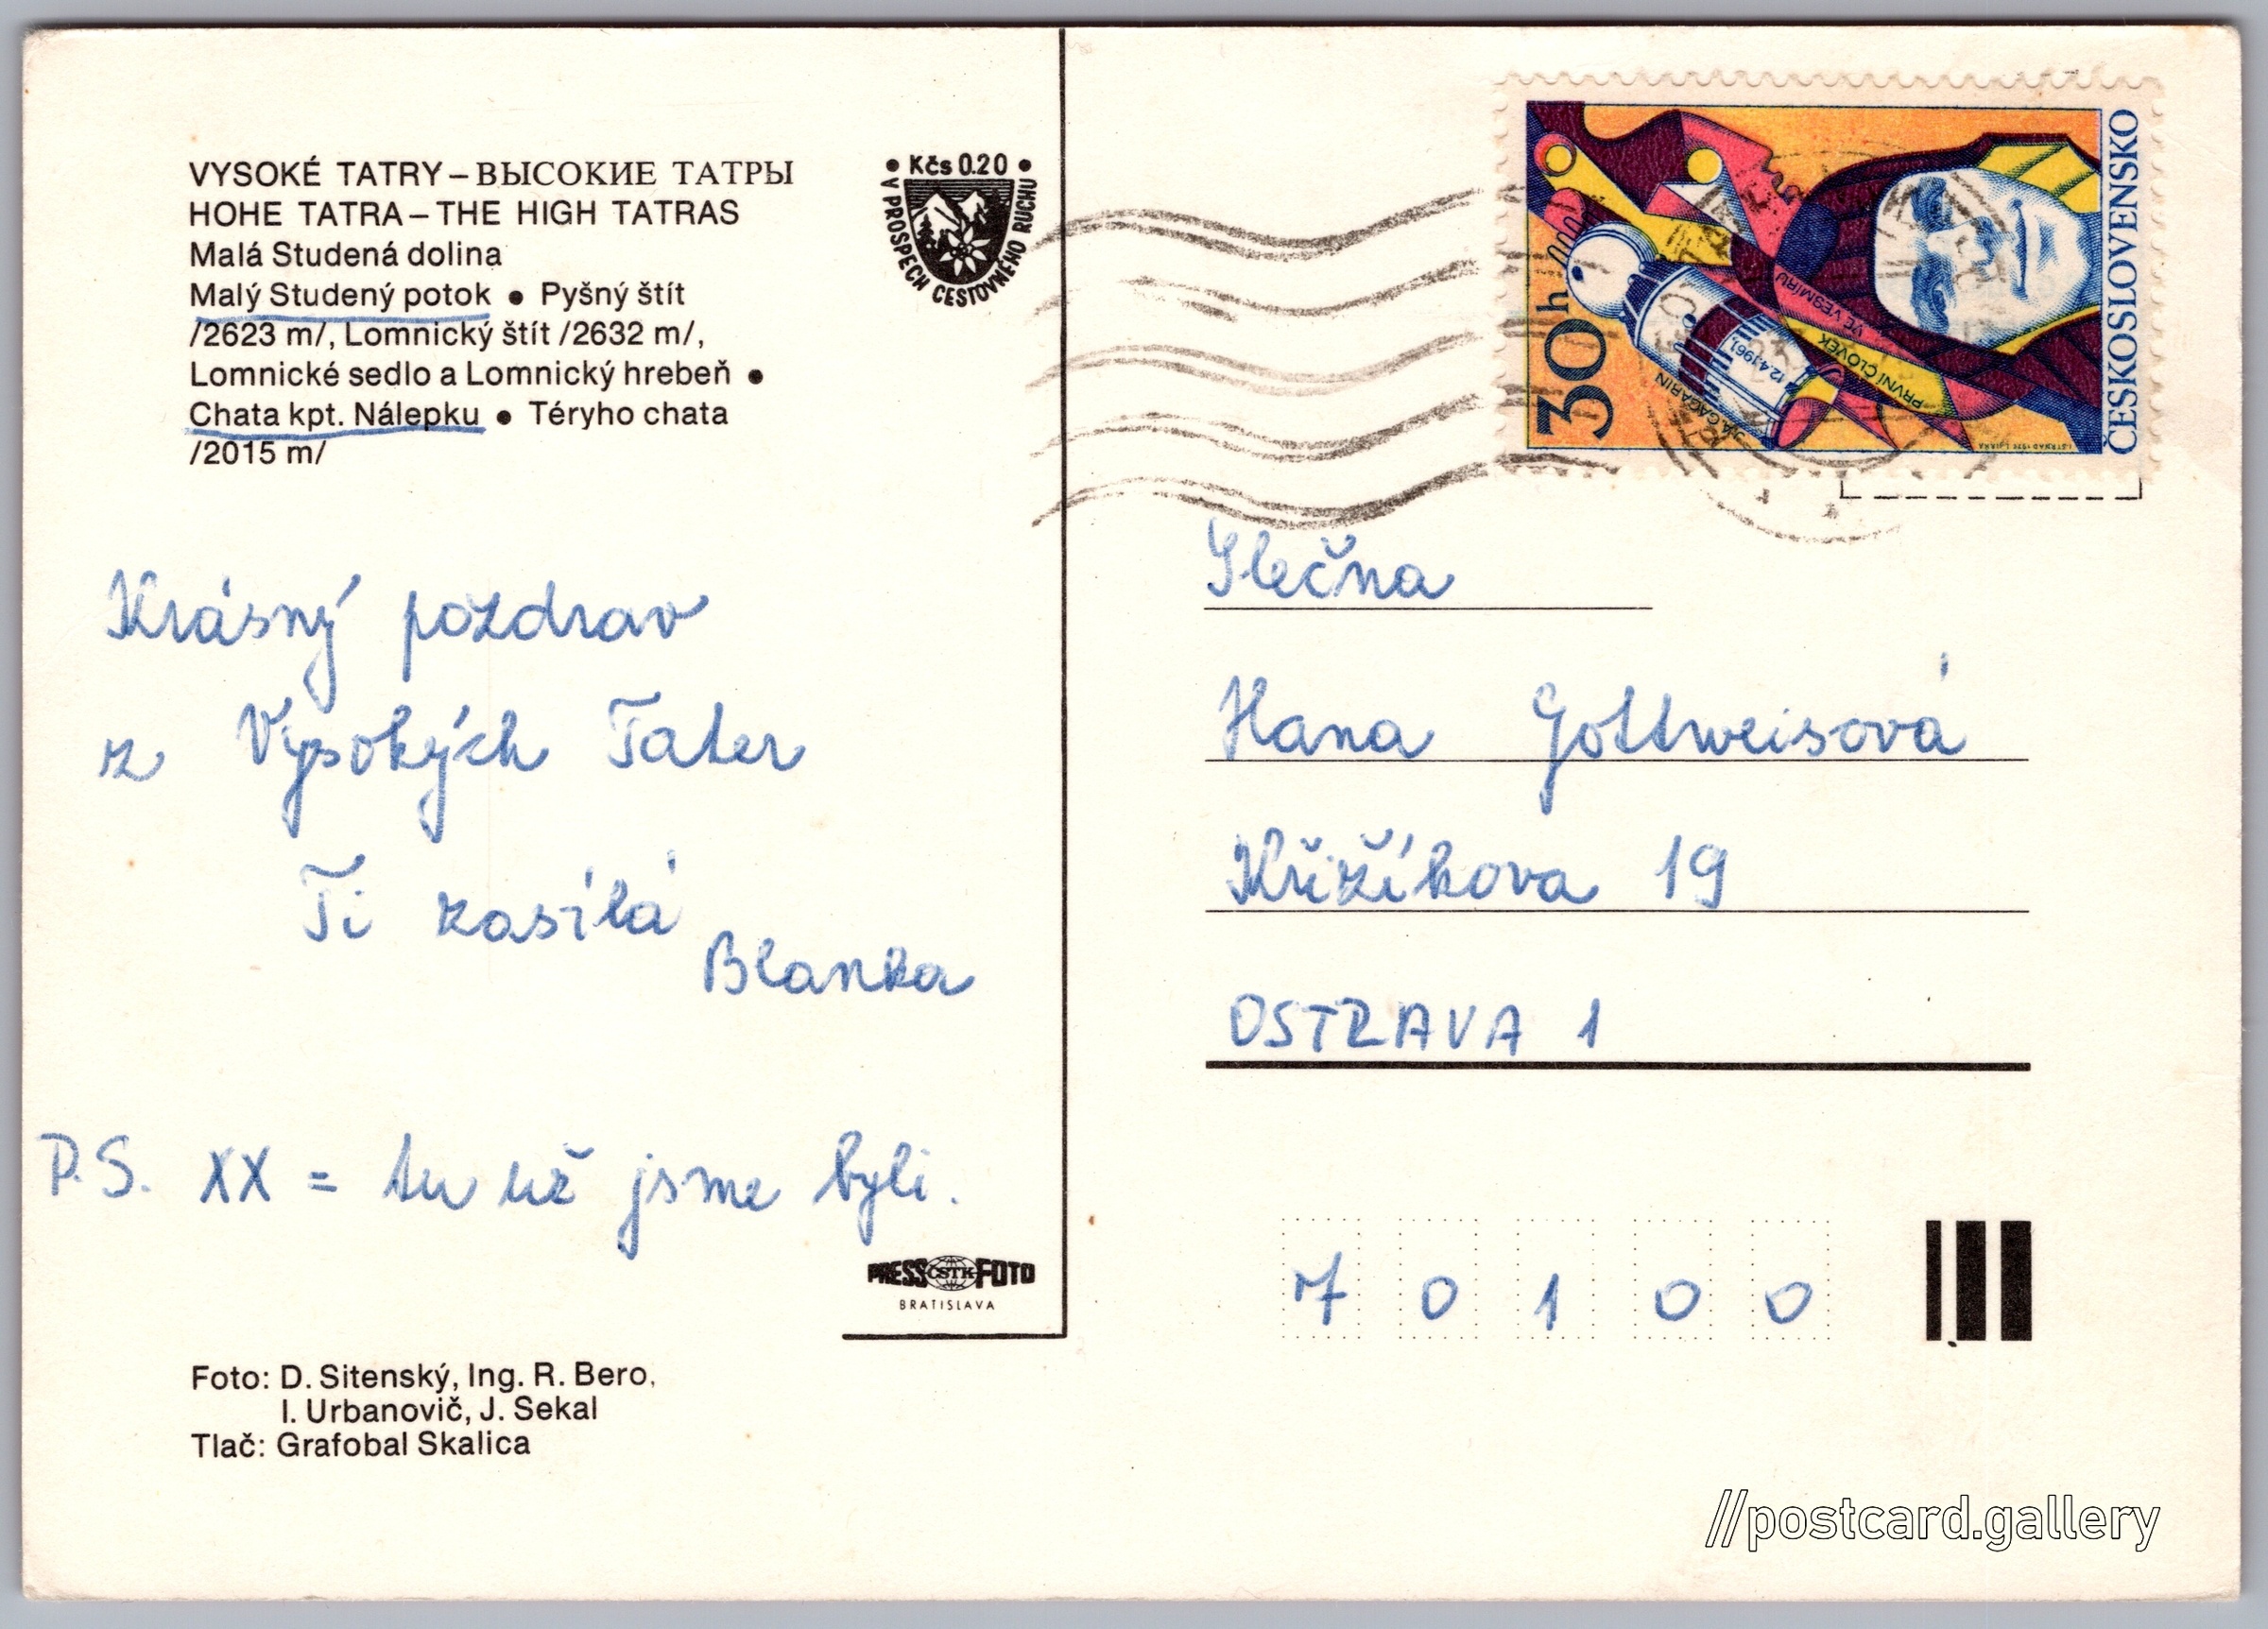 VYSOKÉ TATRY – ВЫСОКИЕ ТАТРЫ
HOHE TATRA – THE HIGH TATRAS
Malá Studená dolina
Malý Studený potok ● Pyšný štít
/2623 m/, Lomnický štít /2632 m/,
Lomnické sedlo a Lomnický hrebeň ●
Chata kpt. Nálepku ● Téryho chata
/2015 m/
• Kčs 0.20 •
V PROSPECH CESTOVNÉHO RUCHU
Krásný pozdrav
z Vysokých Tater
Ti zasílá
Blanka
P.S. XX = tu už jsme byli.
PRESS ČSTK FOTO
BRATISLAVA
Foto: D. Sitenský, Ing. R. Bero,
I. Urbanovič, J. Sekal
Tlač: Grafobal Skalica
30h
ČESKOSLOVENSKO
J.A.GAGARIN
12.4.1961
PRVNÍ ČLOVĚK
VE VESMÍRU
Slečna
Hana Gottweisová
Křižíkova 19
OSTRAVA 1
7 0 1 0 0
//postcard.gallery